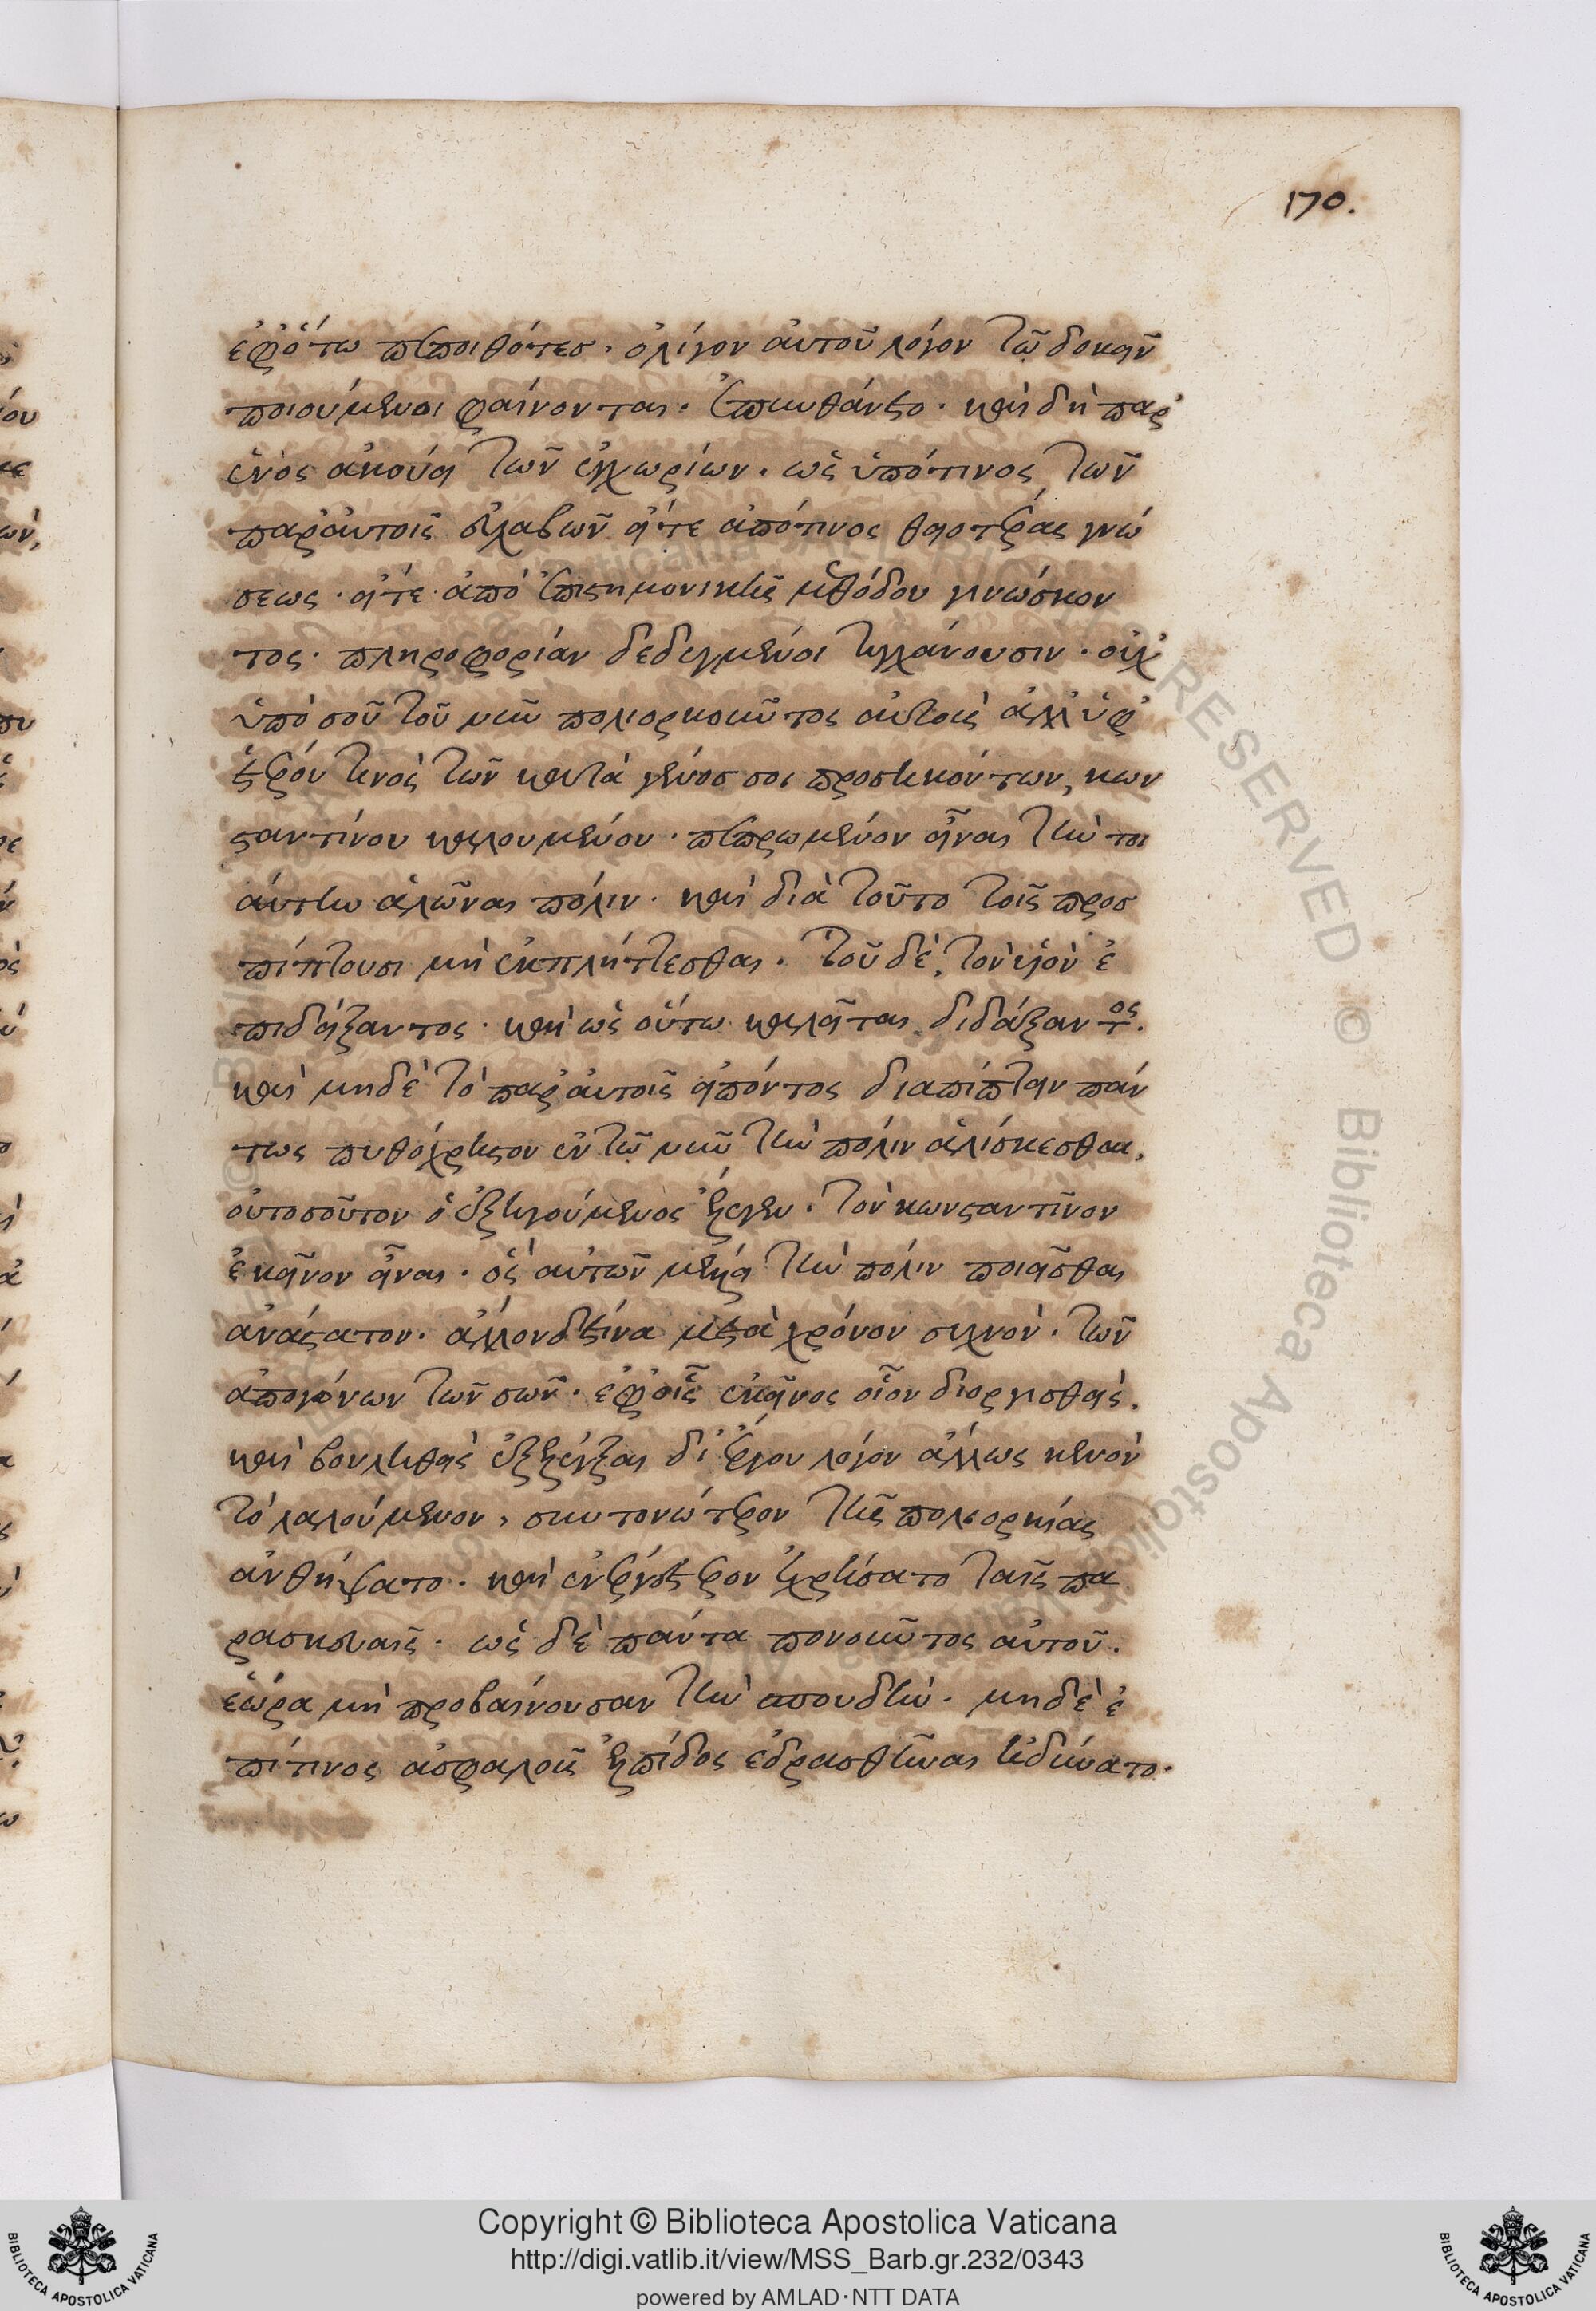 170.
ἐφ᾽ ὅτω πεποιθότες. ὀλίγον αὐτοῦ λόγον τῷ δοκεῖν
ποιούμενοι φαίνονται. ἐπυνθάνετο. καὶ δὴ παρ᾽
ἑνὸς ἀκούει τῶν ἐγχωρίων. ὡς ὑπό τινος τῶν
παρ᾽ αὐτοῖς συλλαβὼν εἴτε ἀπό τινος θειοτέρας γνώ
σεως. εἴτε ἀπὸ ἐπιστημονικῆς μεθόδου γινώσκον
τος. πληροφορίαν δεδεγμένοι τυγχάνουσιν. οὐχ
ὑπὸ σοῦ τοῦ νῦν πολιορκοῦντος αὐτοὺς ἀλλ᾽ ὑφ᾽
ἑτέρου τινὸς τῶν κατὰ γένος σοι προσηκόντων, κων
σταντίνου καλουμένου. πεπρωμένον εἶναι τὴν τοι
αύτην ἁλῶναι πόλιν. καὶ διὰ τοῦτο τοῖς προσ
πίπτουσι μὴ ἐκπλήττεσθαι. τοῦ δὲ, τὸν υἱὸν ἐ
πιδείξαντος. καὶ ὡς οὕτω καλεῖται διδάξαντος.
καὶ μηδὲ τὸ παρ᾽ αὐτοῖς εἰπόντος διαπίπτειν πάν
τως πυθόχρηστον ἐν τῷ νῦν τὴν πόλιν ἁλίσκεσθαι,
οὐ τοσοῦτον ὁ ἐξηγούμενος ἔλεγεν. τὸν κωνσταντῖνον
ἐκεῖνον εἶναι. ὃς αὐτῶν μέλλει τὴν πόλιν ποιεῖσθαι
ἀνάστατον. ἄλλον δέ τινα μετὰ χρόνον συχνὸν. τῶν
ἀπογόνων τῶν σῶν. ἐφ᾽ οἷς ἐκεῖνος οἷον διοργισθεὶς.
καὶ βουληθεὶς ἐξελέγξαι δι᾽ ἔργου λόγον ἄλλως κενὸν
τὸ λαλούμενον, συντονώτερον τῆς πολιορκίας
ἀνθήψατο. καὶ ἐνεργέστερον ἐχρήσατο ταῖς πα
ρασκευαῖς. ὡς δὲ πάντα πονοῦντος αὐτοῦ.
ἑώρα μὴ προβαίνουσαν τὴν σπουδὴν. μηδὲ ἐ
πί τινος ἀσφαλοῦς ἐλπίδος ἑδρασθῆναι ἠδύνατο.
Copyright © Biblioteca Apostolica Vaticana
http://digi.vatlib.it/view/MSS_Barb.gr.232/0343
powered by AMLAD·NTT DATA